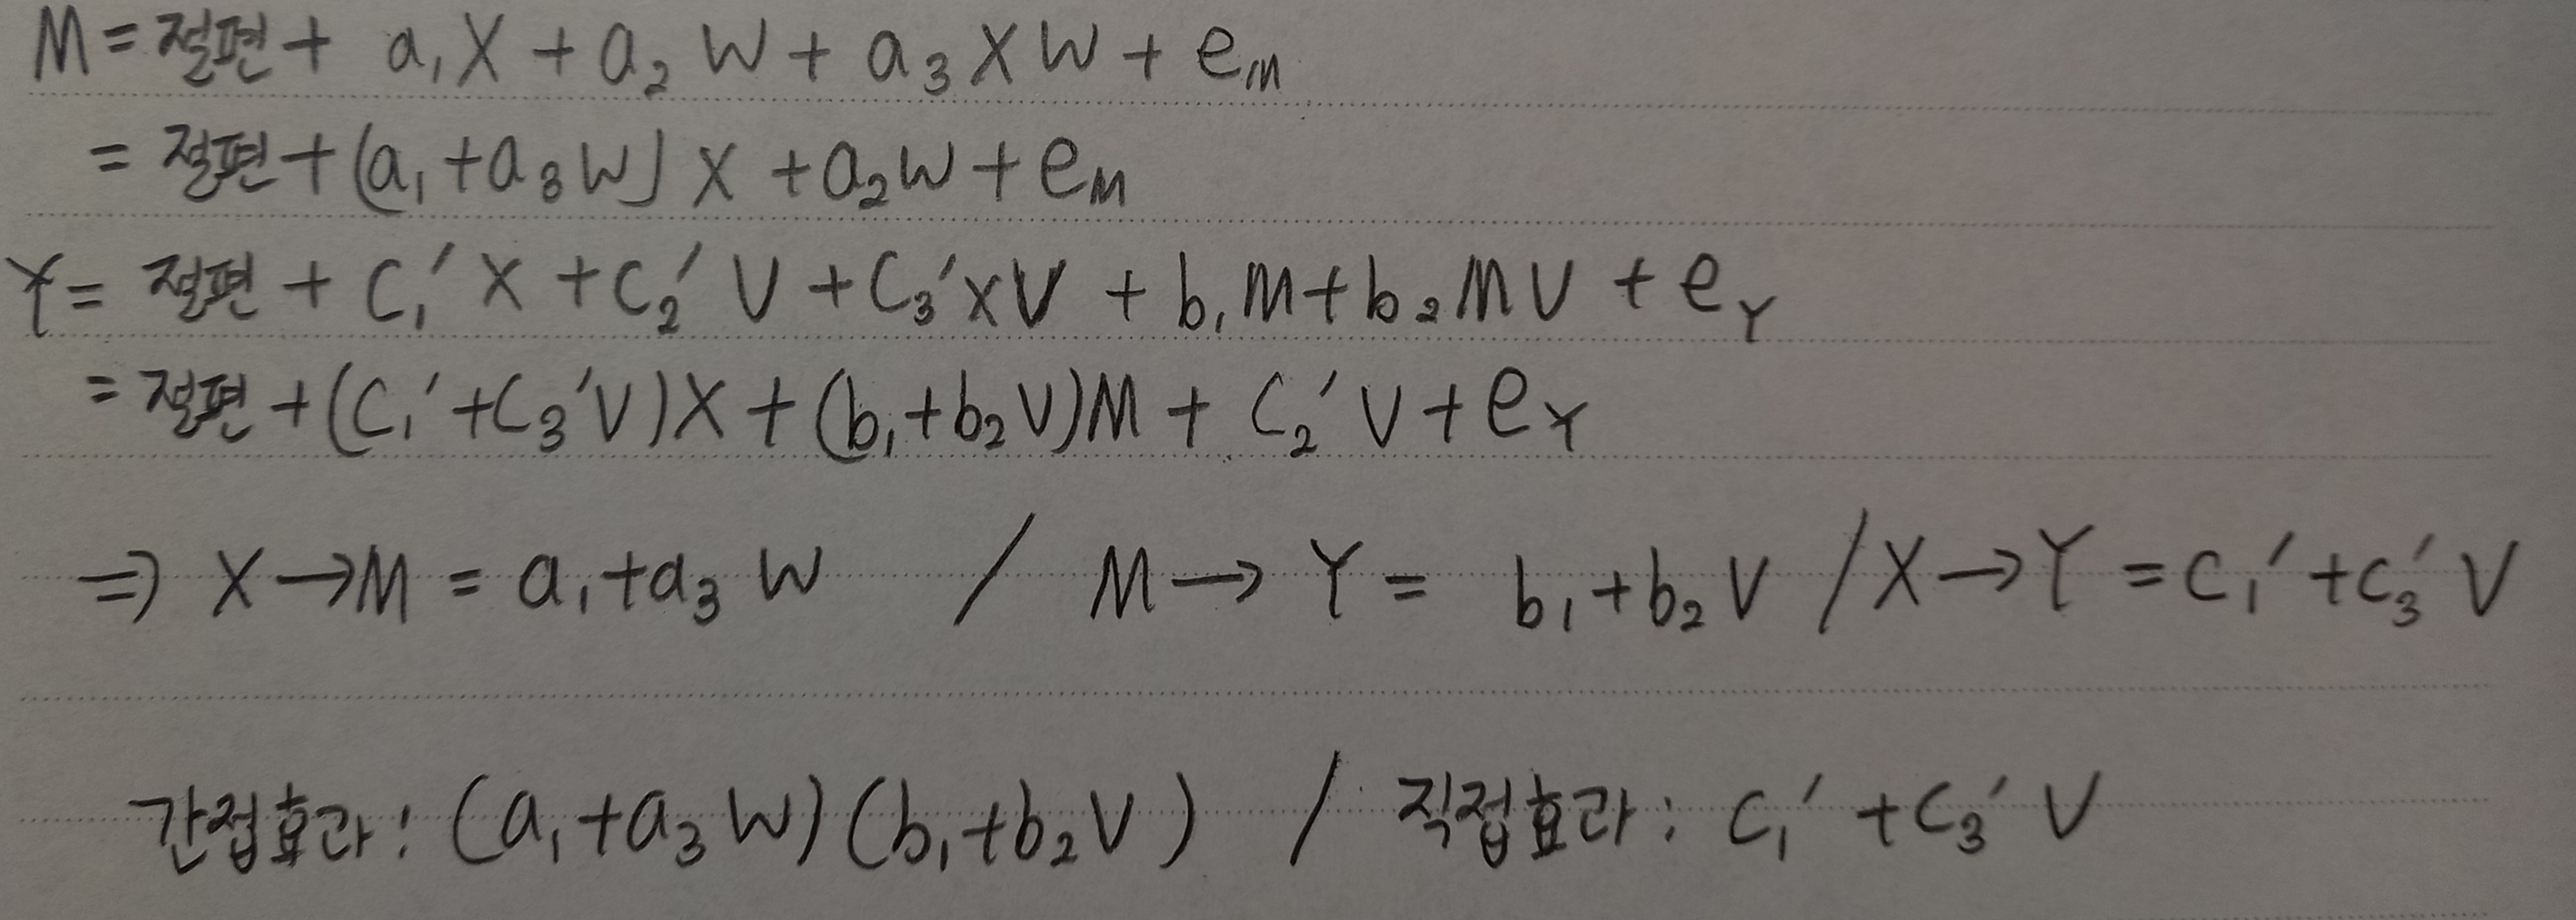 M = 절편 + a₁X + a₂W + a₃XW + eₘ
= 절편 + (a₁+a₃W)X + a₂W + e_M
Y = 절편 + C₁′X + C₂′V + C₃′XV + b₁M + b₂MV + e_Y
= 절편 + (C₁′+C₃′V)X + (b₁+b₂V)M + C₂′V + e_Y
⇒ X→M = a₁+a₃W / M→Y = b₁+b₂V / X→Y = C₁′+C₃′V
간접효과: (a₁+a₃W)(b₁+b₂V) / 직접효과: C₁′+C₃′V